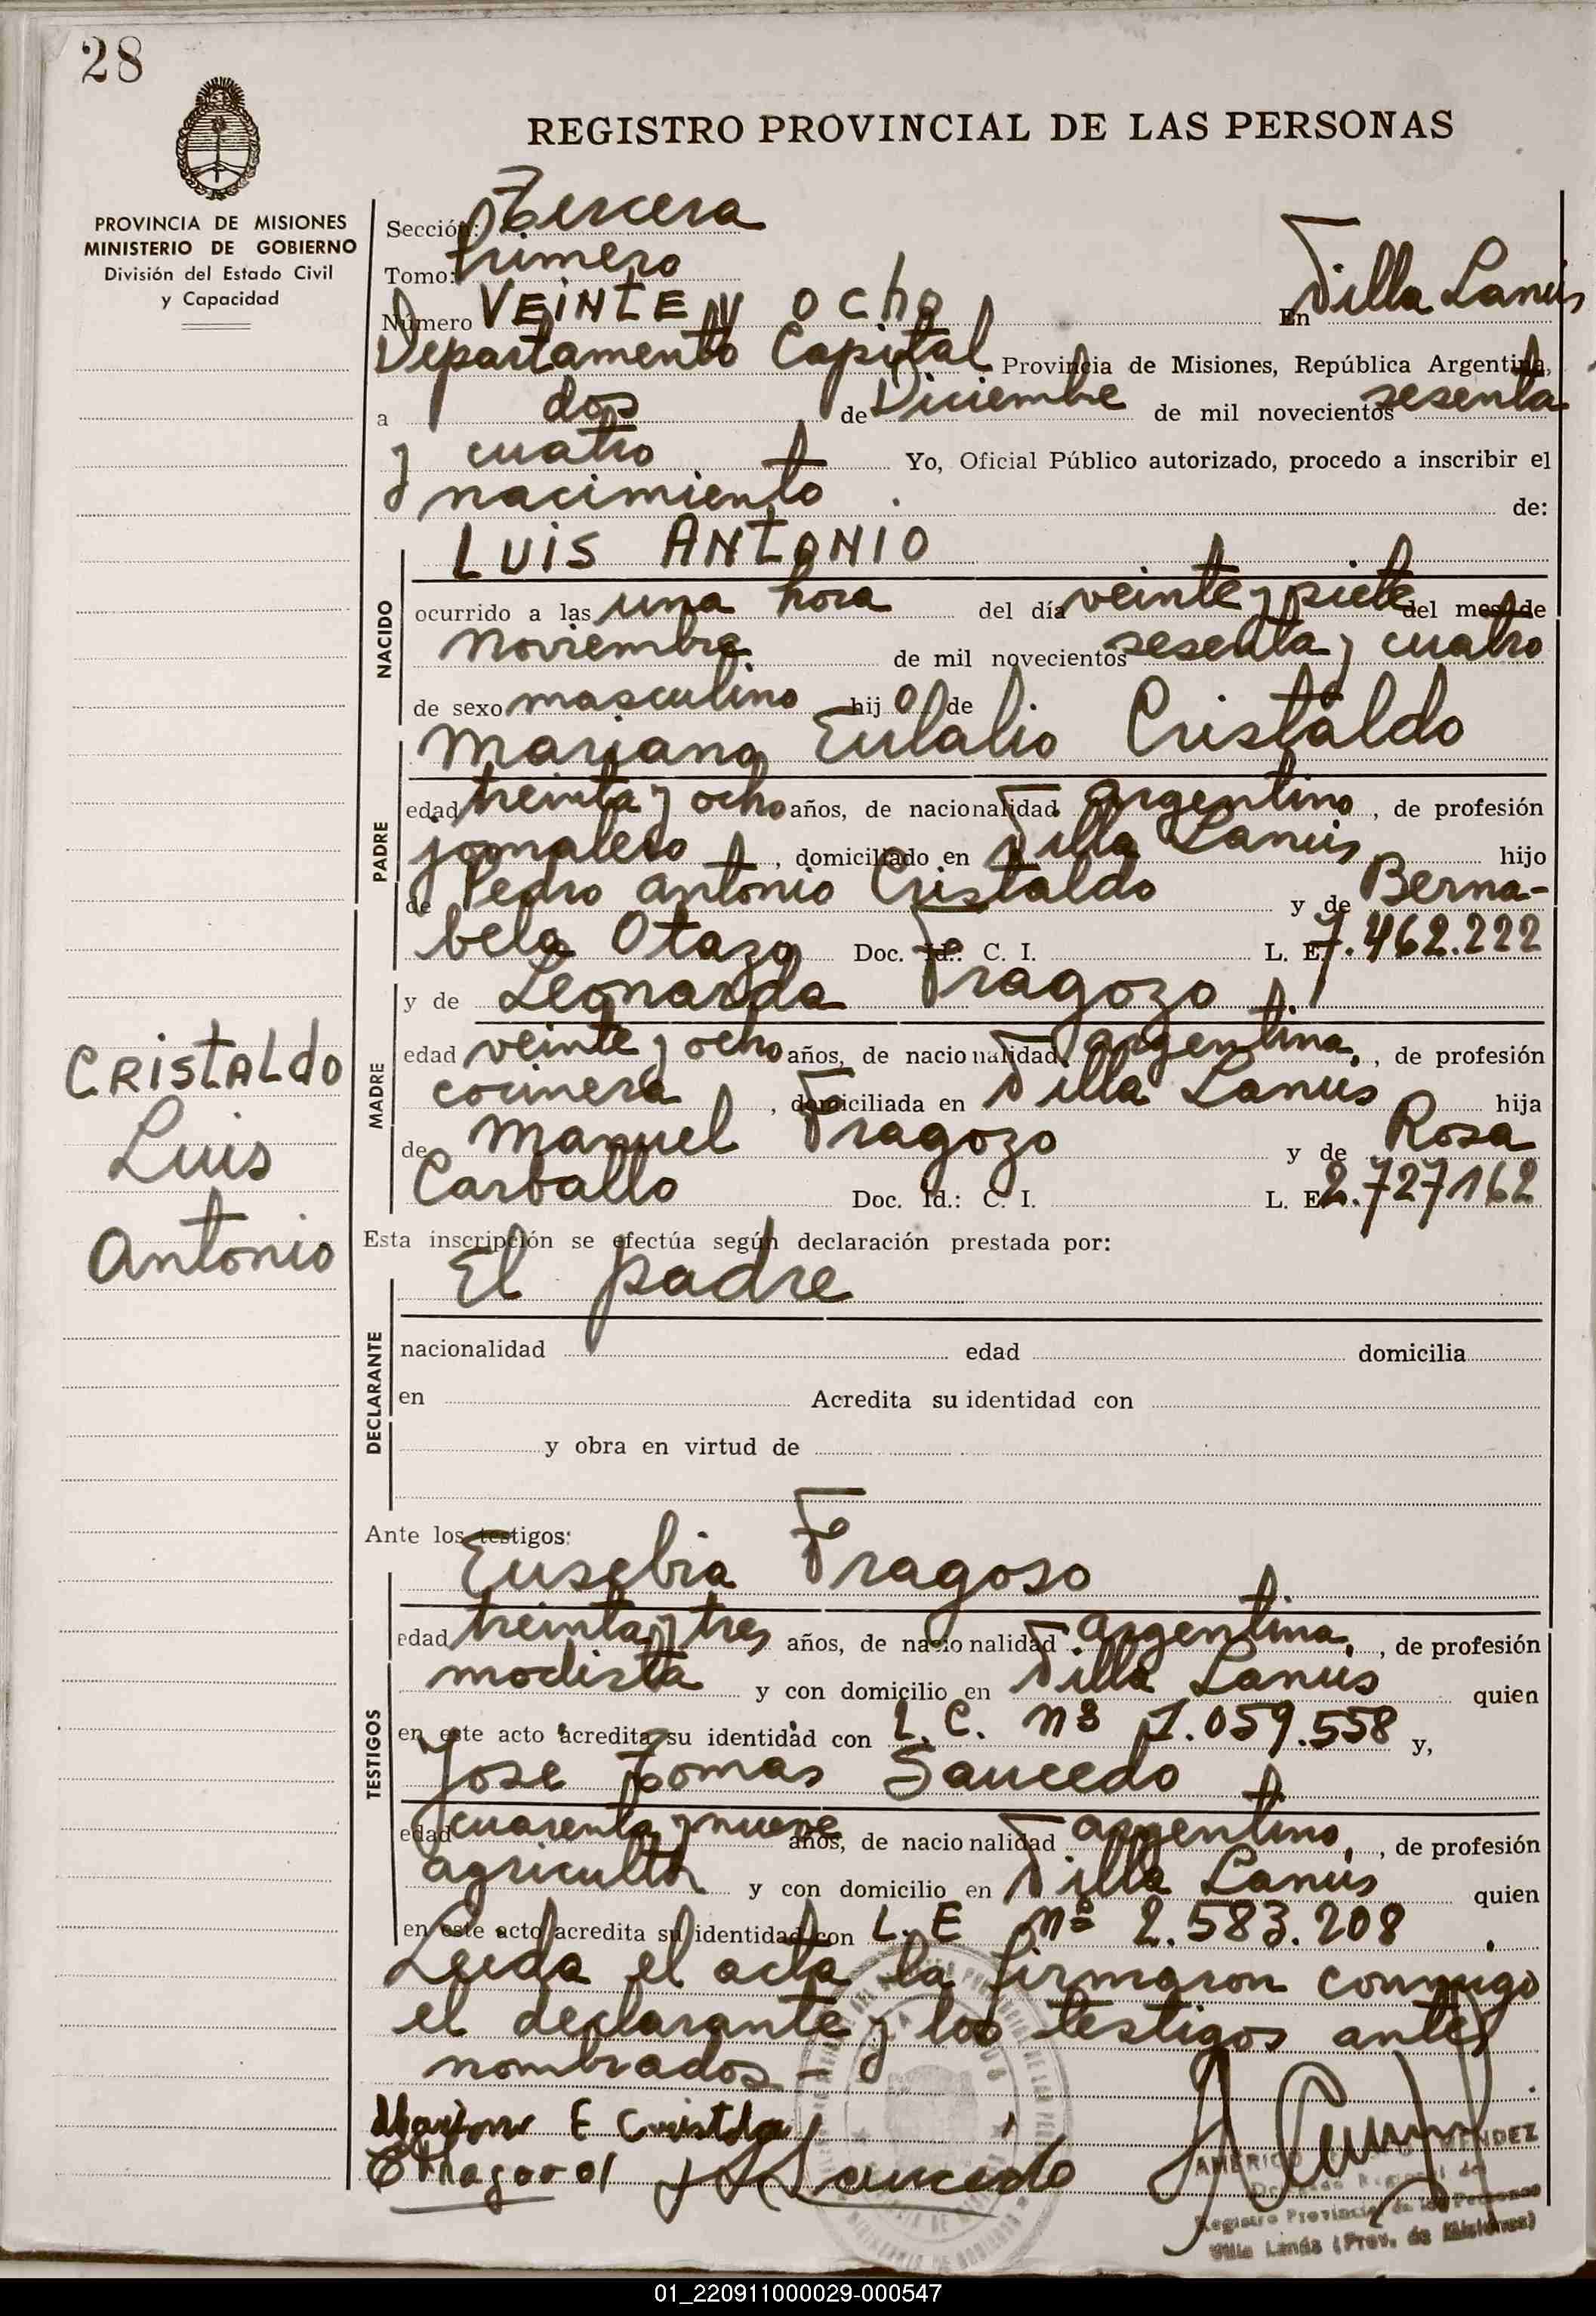 28
REGISTRO PROVINCIAL DE LAS PERSONAS
PROVINCIA DE MISIONES
MINISTERIO DE GOBIERNO
División del Estado Civil
y Capacidad
Sección: Tercera
Tomo: Primero
Número VEINTE y ocho En Villa Lanús
Departamento Capital Provincia de Misiones, República Argentina,
a dos de Diciembre de mil novecientos sesenta
y cuatro Yo, Oficial Público autorizado, procedo a inscribir el
nacimiento de:
NACIDO
LUIS ANTONIO
ocurrido a las una hora del día veinte y siete del mes de
Noviembre de mil novecientos sesenta y cuatro
de sexo masculino hijo de
PADRE
Mariano Eulalio Cristaldo
edad treinta y ocho años, de nacionalidad argentino, de profesión
jornalero, domiciliado en Villa Lanús hijo
de Pedro Antonio Cristaldo y de Berna-
bela Otazo Doc. Id.: C. I. L. E. 7.462.222
MADRE
y de Leonarda Fragozo
edad veinte y ocho años, de nacionalidad argentina, de profesión
cocinera, domiciliada en Villa Lanús hija
de Manuel Fragozo y de Rosa
Carballo Doc. Id.: C. I. L. E. 2.727162
CRISTALdo
Luis
Antonio
Esta inscripción se efectúa según declaración prestada por:
DECLARANTE
El padre
nacionalidad edad domicilia
en Acredita su identidad con
y obra en virtud de
Ante los testigos:
TESTIGOS
Eusebia Fragoso
edad treinta y tres años, de nacionalidad argentina, de profesión
modista y con domicilio en Villa Lanús quien
en este acto acredita su identidad con L. C. Nº 1.059.558 y,
Jose Tomas Saucedo
edad cuarenta y nueve años, de nacionalidad argentino, de profesión
agricultor y con domicilio en Villa Lanús quien
en este acto acredita su identidad con L. E Nº 2.583.208.
Leida el acta la firmaron conmigo
el declarante y los testigos antes
nombrados -
E Cristaldo
Saucedo
AMÉRICO MENDEZ
Registro Provincial de las Personas
Villa Lanús (Prov. de Misiones)
01_220911000029-000547